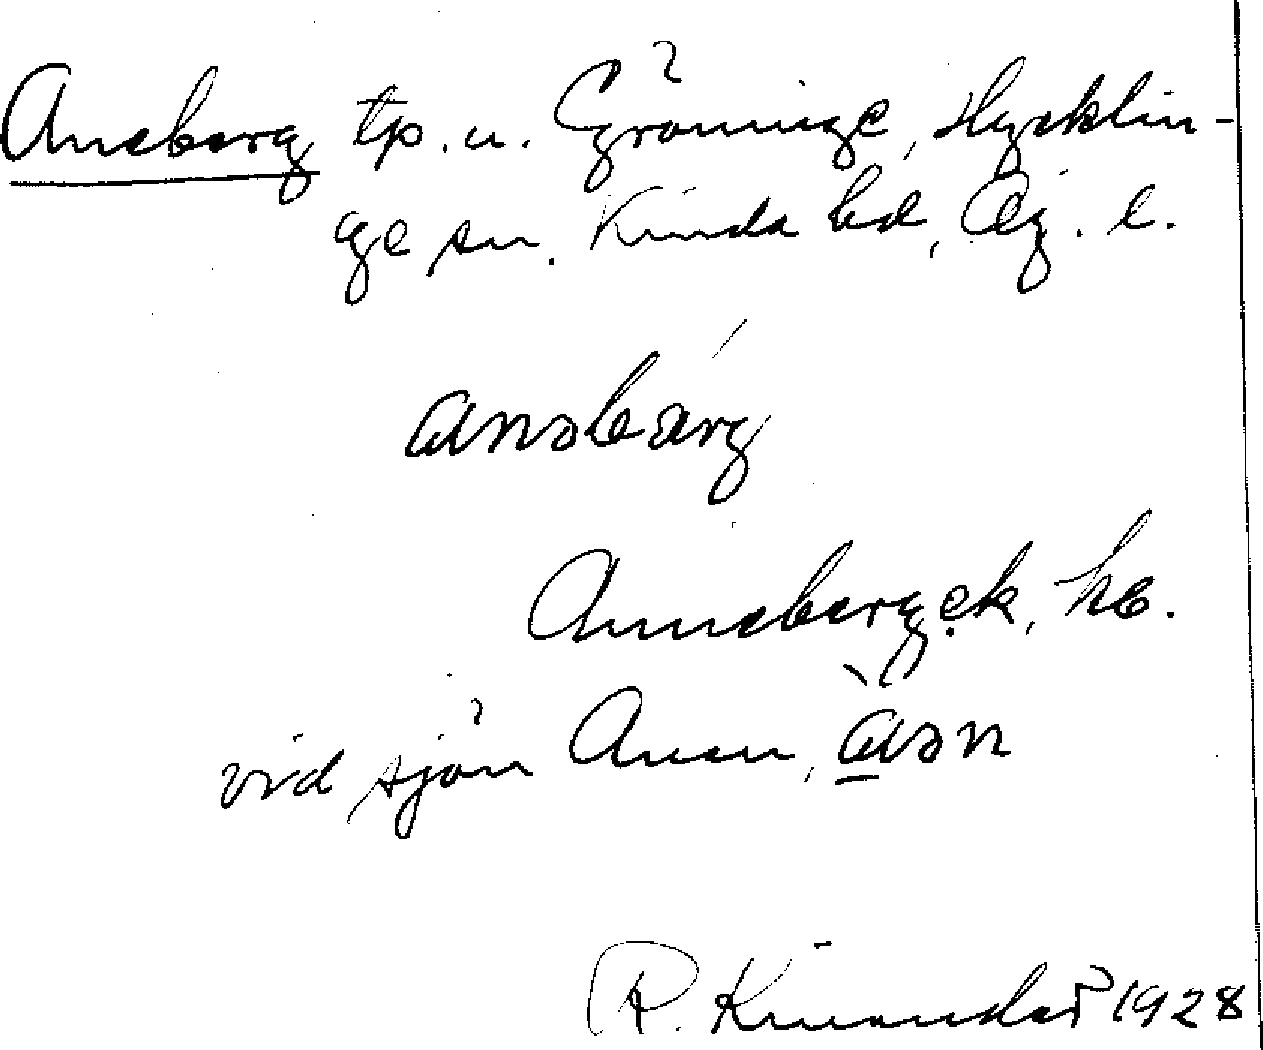 Ansberg tp. u. Gröninge, Hycklin-
ge sn. Kinda hd, Ög. l.
ansbärg
Annsberg, ek. 
vid sjön Ansen, åsn
R. Kinander 1928